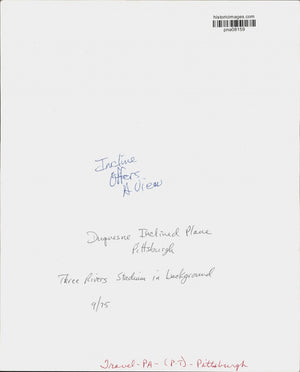 historicimages.com
pna08159
Incline
Offers
A View
Duquesne Inclined Plane
Pittsburgh
Three Rivers Stadium in background
9/75
Travel-PA-(PT)-Pittsburgh